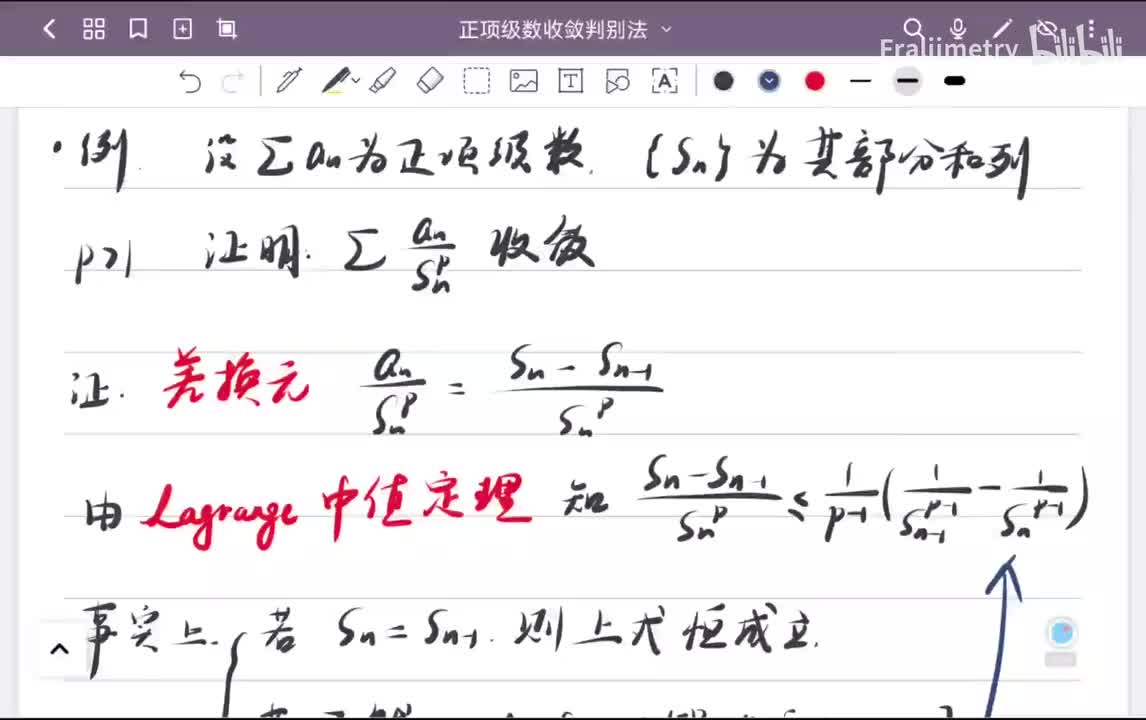 正项级数收敛判别法
Fraljimetry bilibili
·例. 设 ∑ an 为正项级数. {Sn} 为其部分和列
p>1 证明: ∑ an/Sn^p 收敛
证. 差换元 an/Sn^p = (Sn - Sn-1)/Sn^p
由 Lagrange 中值定理 知 (Sn - Sn-1)/Sn^p ≤ 1/(p-1) (1/Sn-1^(p-1) - 1/Sn^(p-1))
事实上. 若 Sn = Sn-1. 则上式恒成立.